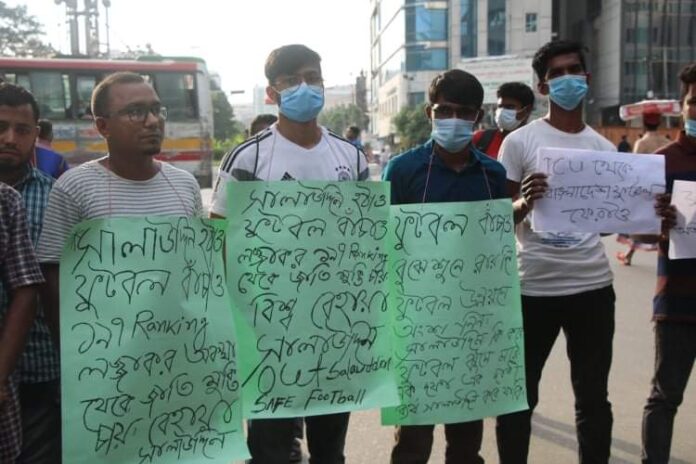 সালাউদ্দিন হঠাও
ফুটবল বাঁচাও
১৯৭ Ranking
লজ্জাকর অবস্থা
থেকে জাতি মুক্তি
চায়। বেহায়া
সালাউদ্দিন
সালাউদ্দিন হঠাও
ফুটবল বাঁচাও
লজ্জাকর ১৯৭ Ranking
থেকে জাতি মুক্তি চায়
বিশ্ব বেহায়া
সালাউদ্দিন
Out Salauddin
SAFE Football
ফুটবল বাঁচাও
বুঝে শুনে রায় দিন
ফুটবল উন্নয়নে
অংশ নিন।
সালাউদ্দিন
ফুটবল
ICU থেকে
বাংলাদেশ ফুটবল
ফেরাও